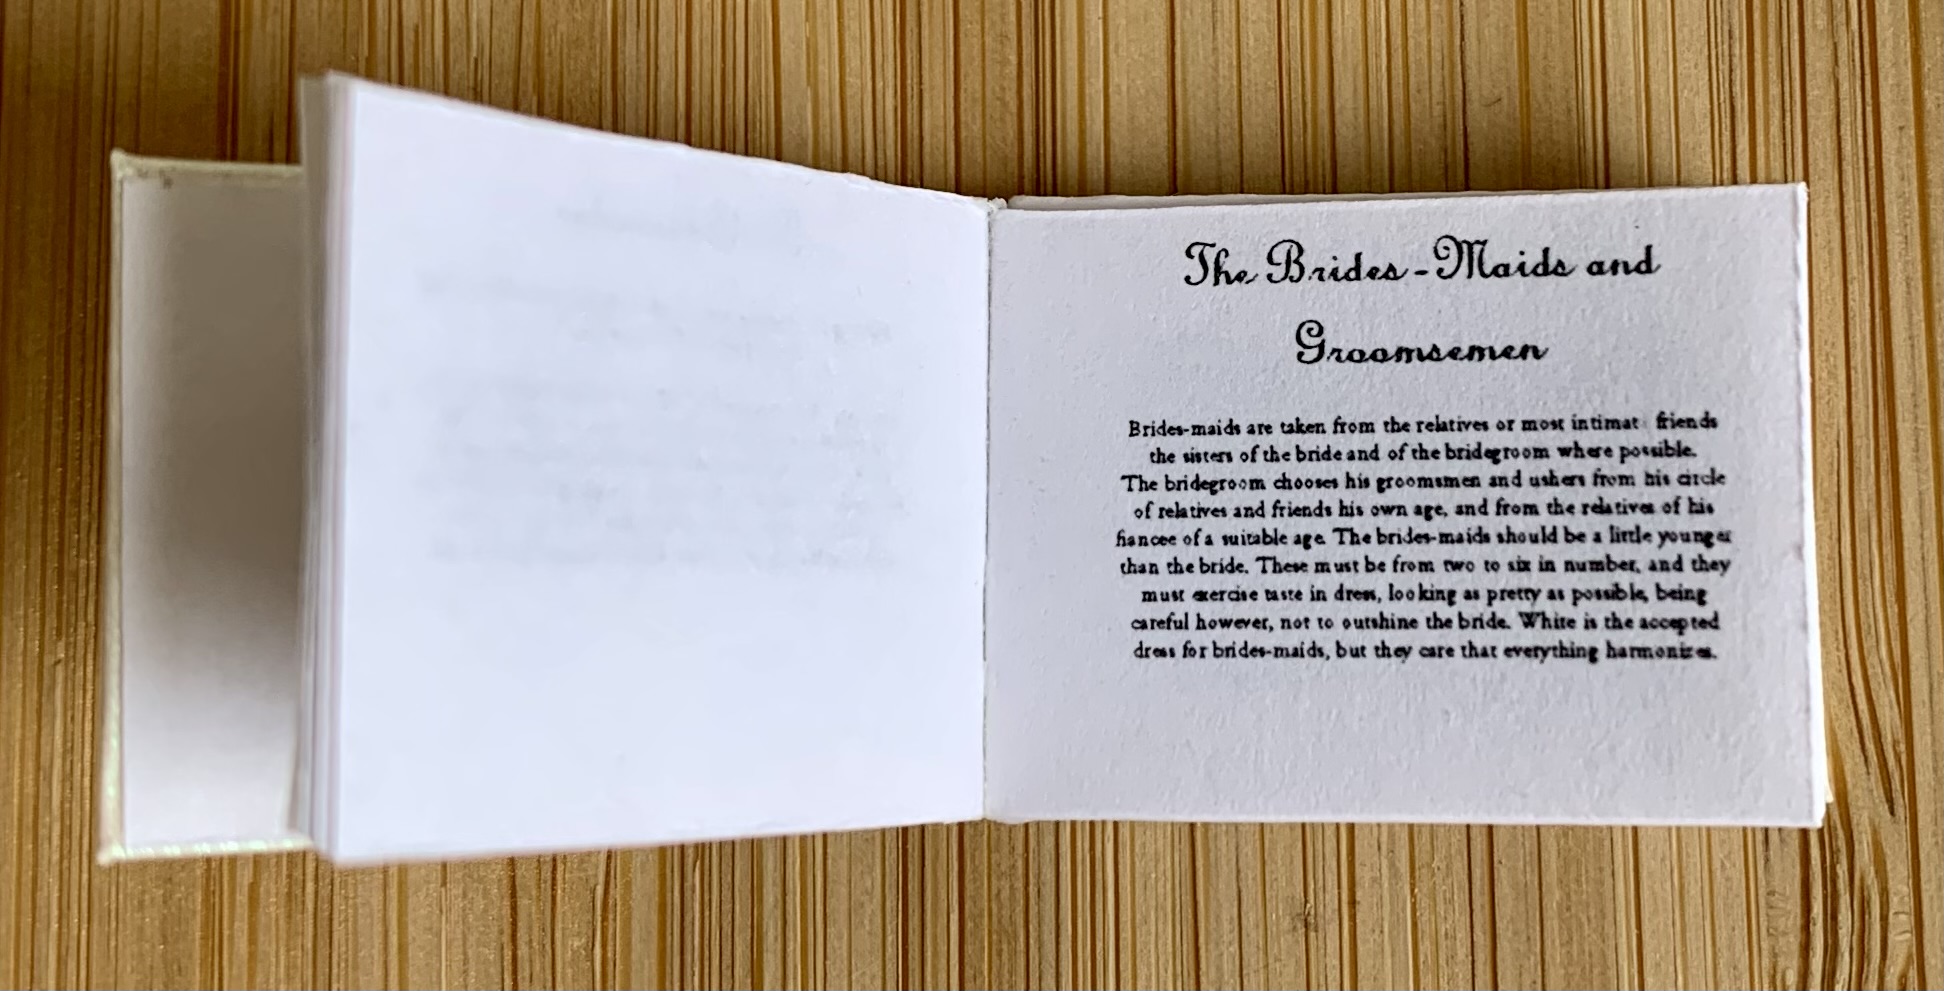 The Brides-Maids and
Groomsemen
Brides-maids are taken from the relatives or most intimat friends
the sisters of the bride and of the bridegroom where possible.
The bridegroom chooses his groomsmen and ushers from his circle
of relatives and friends his own age, and from the relatives of his
fiancee of a suitable age. The brides-maids should be a little younger
than the bride. These must be from two to six in number, and they
must exercise taste in dress, looking as pretty as possible, being
careful however, not to outshine the bride. White is the accepted
dress for brides-maids, but they care that everything harmonizes.